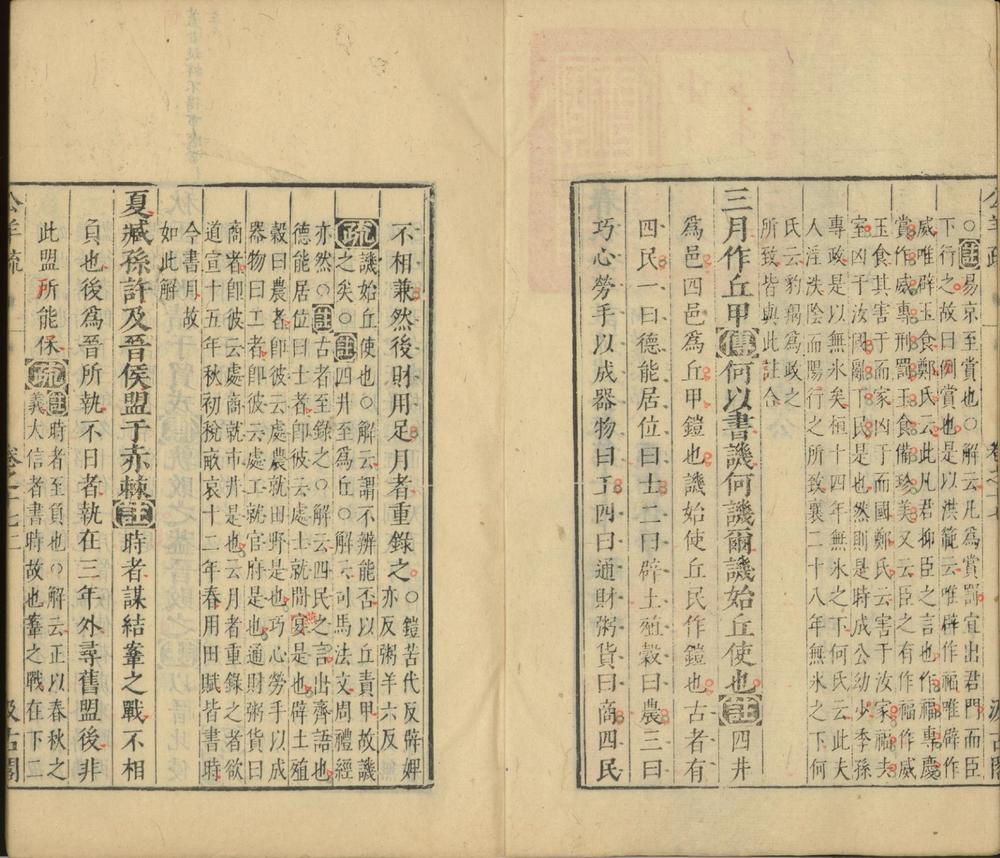 ○註易京至賞也○解云凡爲賞罰宜出君門而臣
下行之故曰倒賞也是以洪範云唯辟作福唯辟作
威唯辟玉食鄭氏云此凡君抑臣之言也作福專慶
賞作威專刑罰玉食備珍美又云臣之有作福作威
玉食其害于而家凶于而國鄭氏云害于汝家福去
室凶于汝國亂下民是也然則是時成公幼少季孫
專政是以無氷矣桓十四年無氷之下何氏云此夫
人淫泆陰而陽行之所致襄二十八年無氷之下何
氏云豹羯爲政之
所致皆與此註合
三月作丘甲傳何以書譏何譏爾譏始丘使也註四井
爲邑四邑爲丘甲鎧也譏始使丘民作鎧也古者有
四民一曰德能居位曰士二曰辟土殖穀曰農三曰
巧心勞手以成器物曰工四曰通財粥貨曰商四民
不相兼然後財用足月者重錄之○鎧苦代反辟婢
亦反粥羊六反
疏譏始丘使也○解云謂不辨能否以丘責甲故譏
之矣○註四井至爲丘○解云司馬法文周禮經
亦然○註古者至錄之○解云四民之言出齊語也
德能居位曰士者卽彼云處士就閒宴是也辟土殖
穀曰農者卽彼云處農就田野是也巧心勞手以成
器物曰工者卽彼云處工就官府是也通財粥貨曰
商者卽彼云處商就市井是也云月者重錄之者欲
道宣十五年秋初稅畝哀十二年春用田賦皆書時
今書月故
如此解
夏臧孫許及晉侯盟于赤棘註時者謀結鞌之戰不相
負也後爲晉所執不日者執在三年外尋舊盟後非
此盟所能保疏註時者至負也○解云正以春秋之
義大信者書時故也鞌之戰在下二
公羊疏
卷之十七
汲古閣